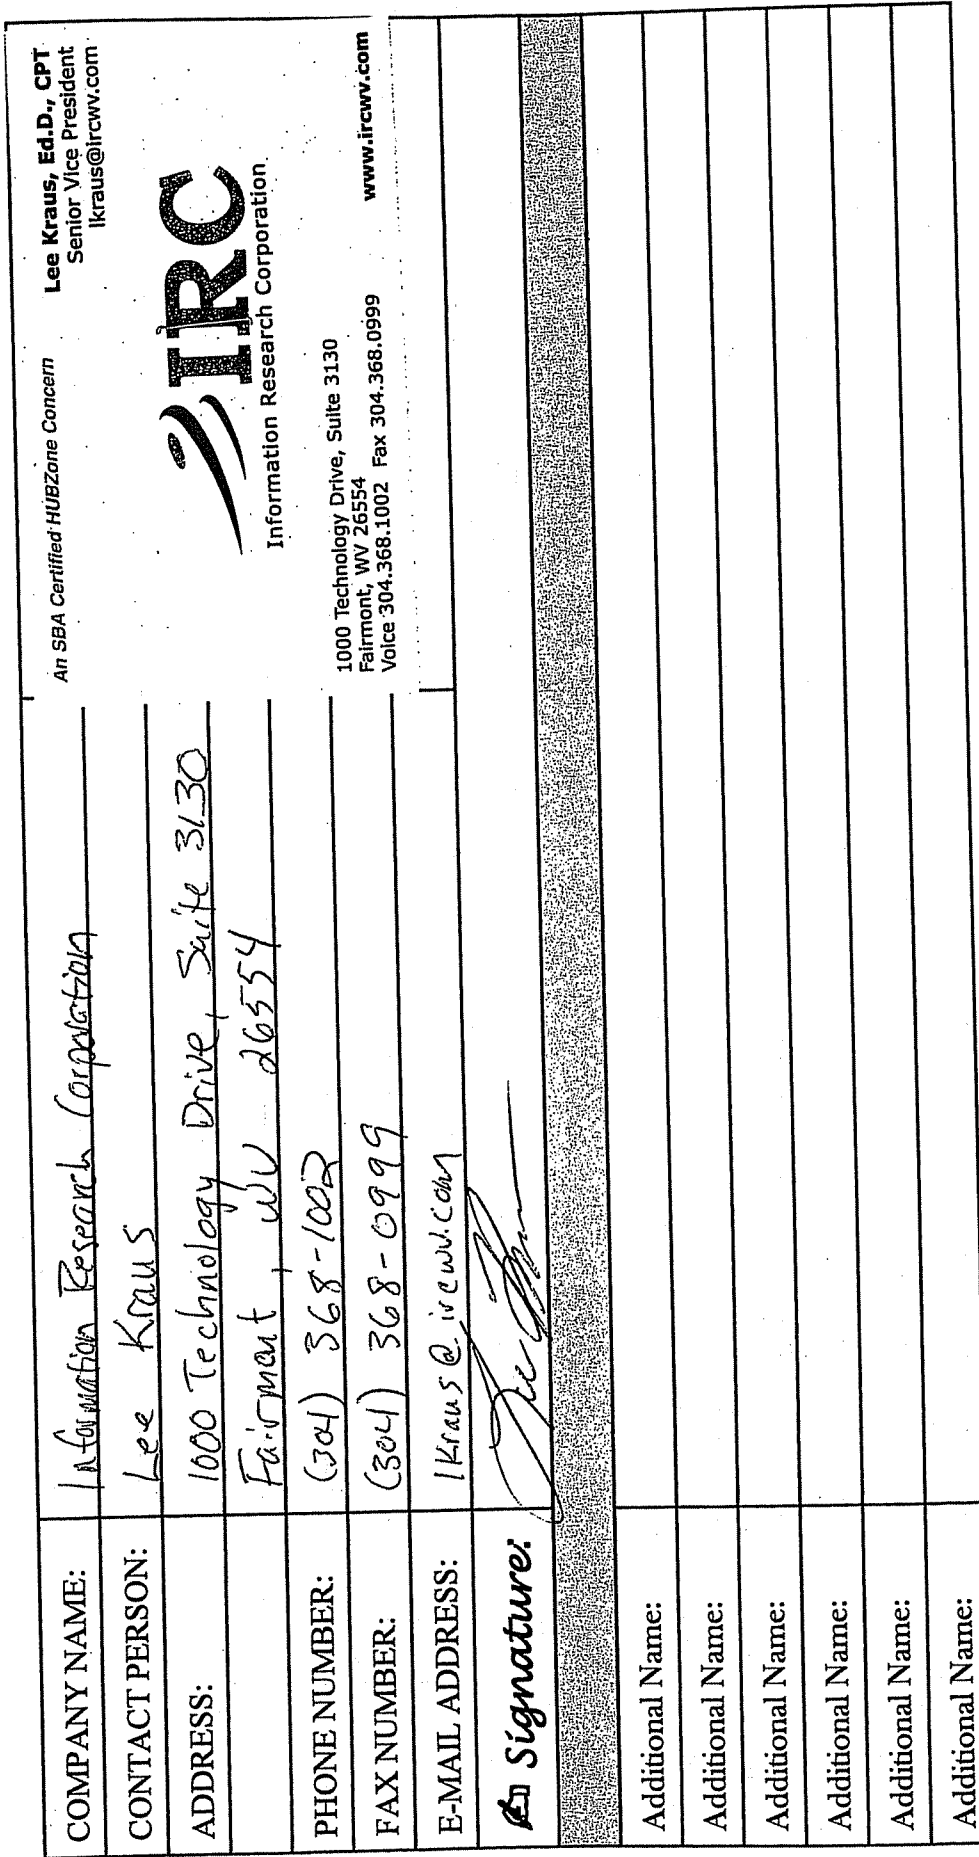 COMPANY NAME: Information Research Corporation
CONTACT PERSON: Lee Kraus
ADDRESS: 1000 Technology Drive, Suite 3130
Fairmont, WV 26554
PHONE NUMBER: (304) 368-1002
FAX NUMBER: (304) 368-0999
E-MAIL ADDRESS: lKraus@ircwv.com
Signature:
Additional Name:
Additional Name:
Additional Name:
Additional Name:
Additional Name:
Additional Name:
An SBA Certified HUBZone Concern
Lee Kraus, Ed.D., CPT
Senior Vice President
lkraus@ircwv.com
IRC
Information Research Corporation
1000 Technology Drive, Suite 3130
Fairmont, WV 26554
Voice 304.368.1002 Fax 304.368.0999
www.ircwv.com